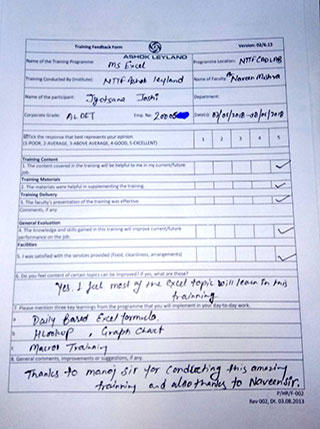 Training Feedback Form
ASHOK LEYLAND
Version: 02/6.13
Name of the Training Programme MS Excel
Programme Location: NTTF CAD LAB
Training Conducted By (Institute) NTTF Ashok leyland
Name of Faculty Naveen Mishra
Name of the participant: Jyotsana Joshi
Department:
Corporate Grade: AL DET
Emp. No: 20005
Date(s)
Tick the response that best represents your opinion
(1-POOR, 2-AVERAGE, 3-ABOVE AVERAGE, 4-GOOD, 5-EXCELLENT)
1 2 3 4 5
Training Content
1. The content covered in the training will be helpful to me in my current/future
job.
Training Materials
2. The materials were helpful in supplementing the training.
Training Delivery
3. The faculty's presentation of the training was effective
Comments, if any
General Evaluation
4. The knowledge and skills gained in this training will improve current/future
performance on the job.
Facilities
5. I was satisfied with the services provided (food, cleanliness, arrangements)
6. Do you feel content of certain topics can be improved? If yes, what are those?
Yes, I feel most of the Excel topic will learn in this
trainning
7. Please mention three key learnings from the programme that you will implement in your day-to-day work.
a Daily Based Excel formula.
b HLookup, Graph Chart
c Macros Training
8. General comments, improvements or suggestions, if any.
Thanks to manoj sir for conducting this amazing
trainning and also thanks to Naveen sir.
P/HRF/F-002
Rev 002, Dt. 03.08.2013